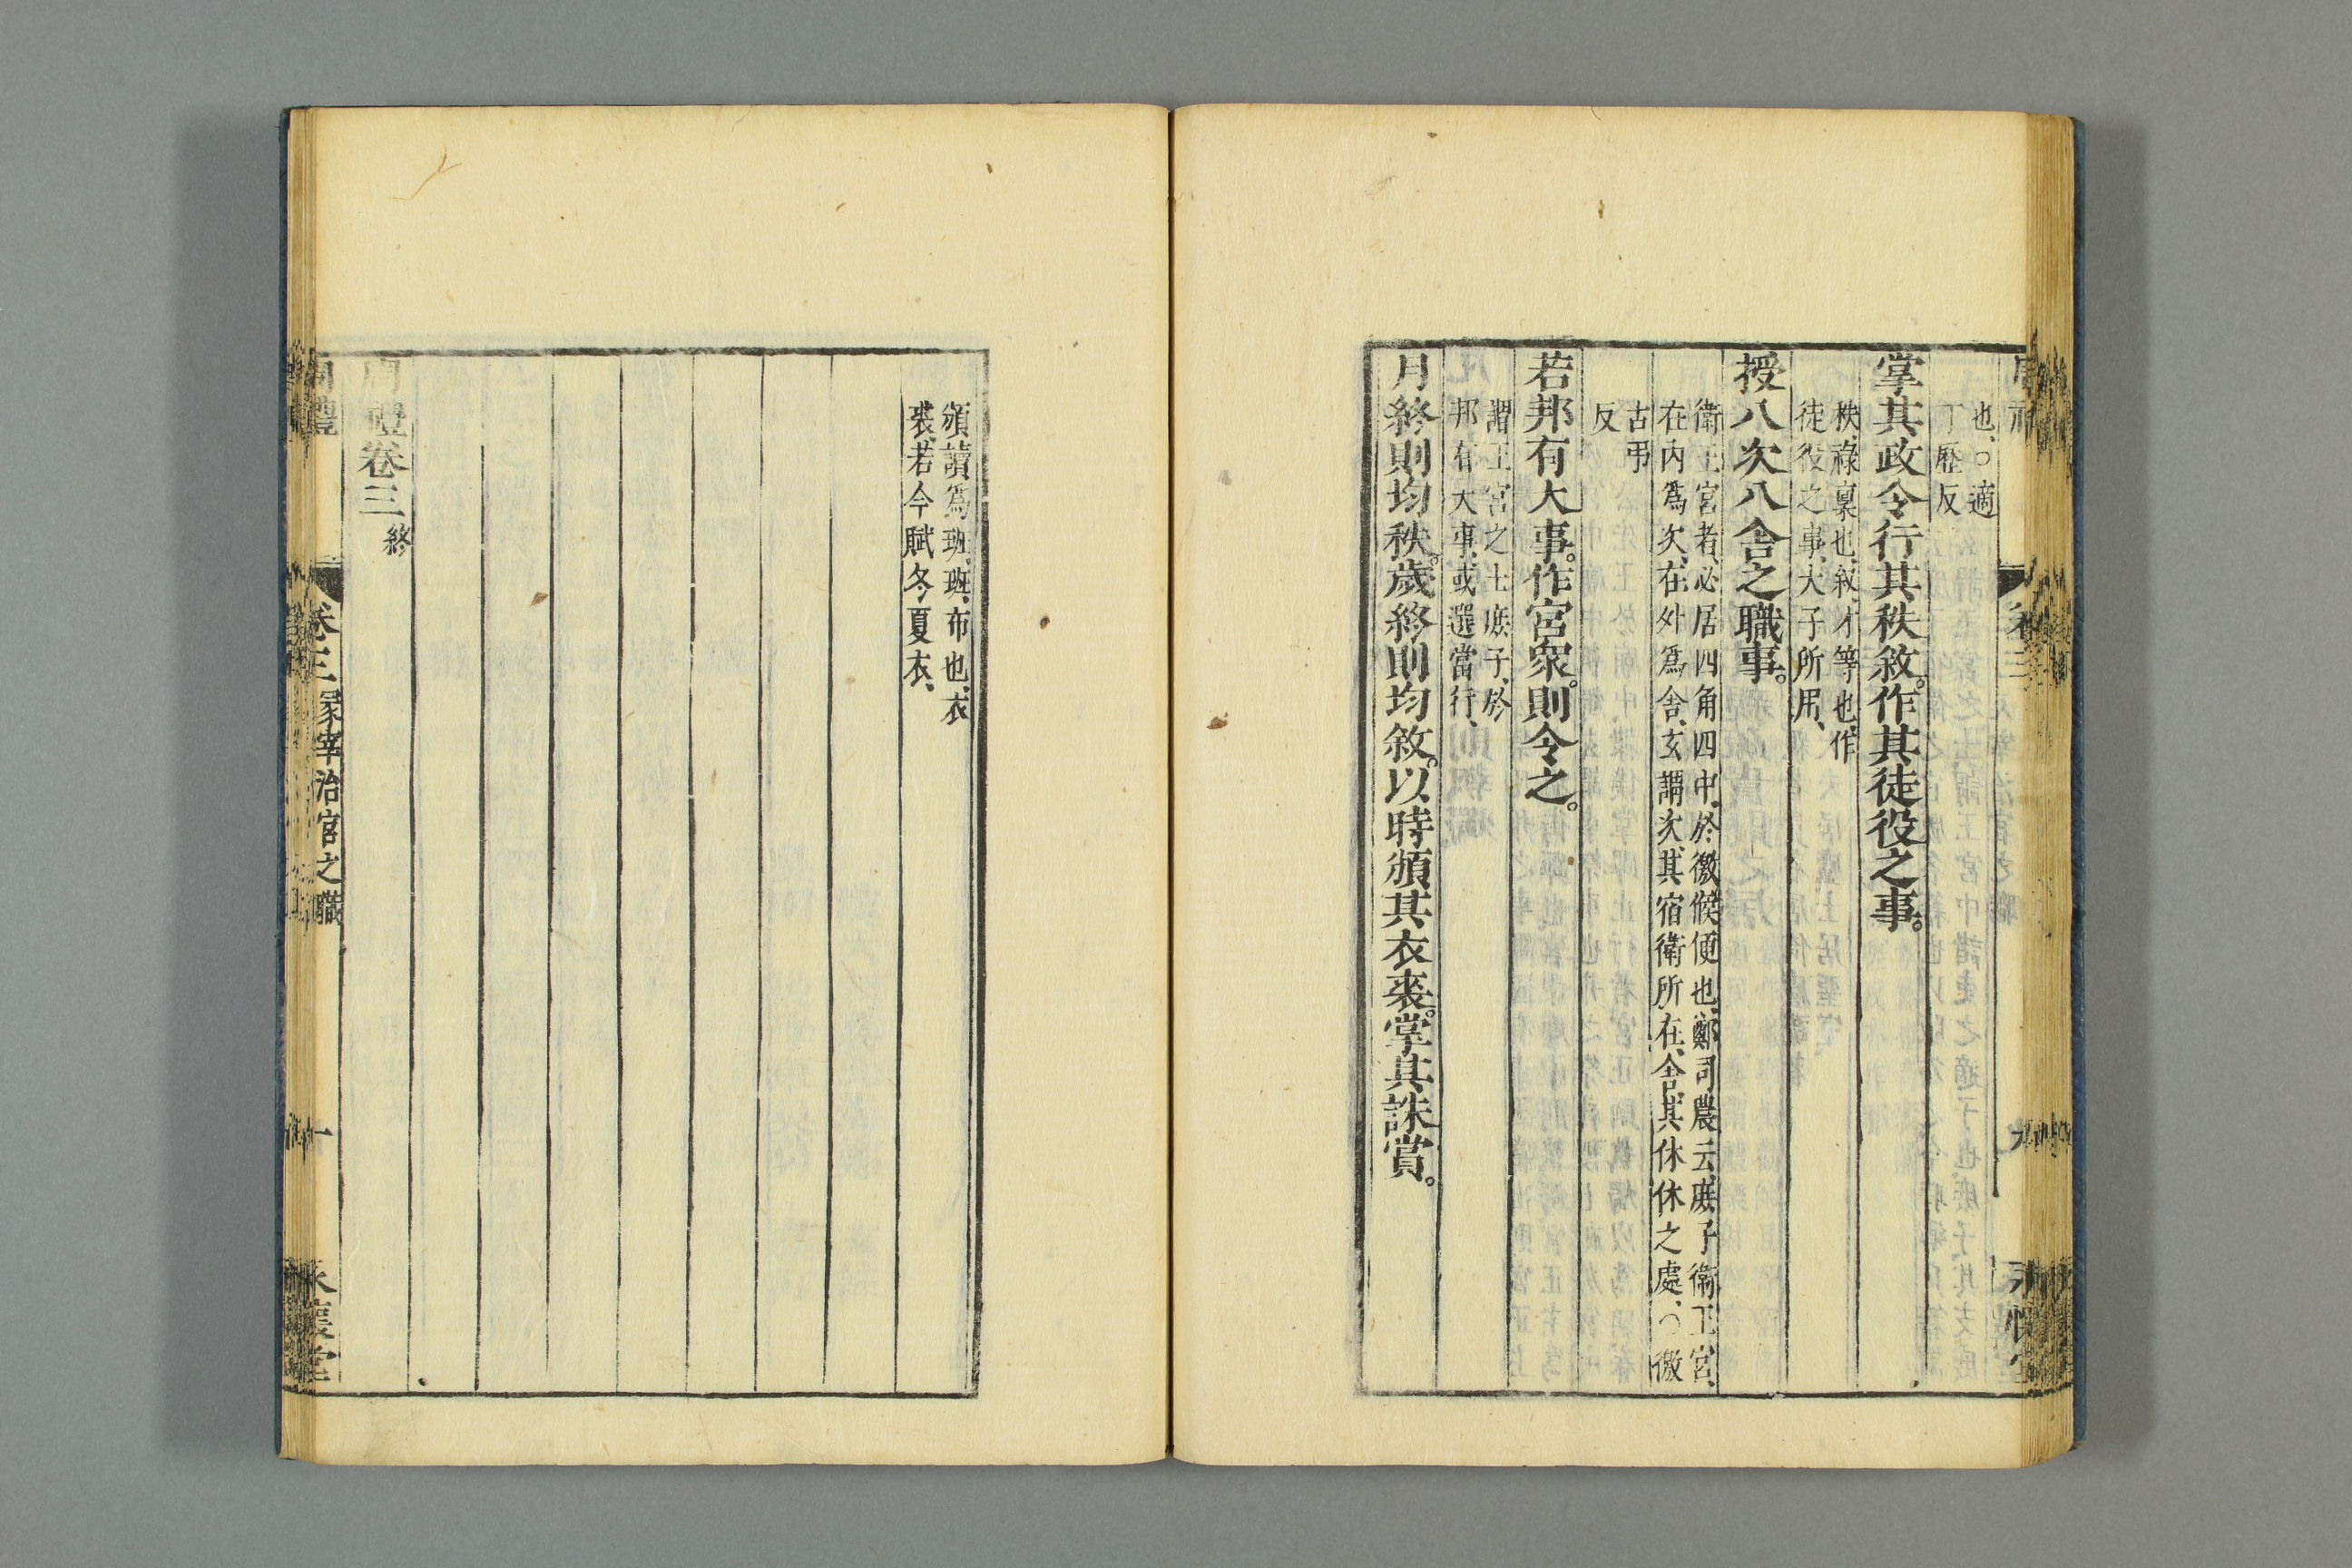 也、○適
丁歷反
掌其政令行其秩敘。作其徒役之事。
秩、祿稟也、敘、才等也、作
徒役之事、大子所用、
授八次八舍之職事。
衛王宮者、必居四角四中、於徼候便也、鄭司農云、庶子衛王宮、
在內爲次、在外爲舍、玄謂次、其宿衛所在、舍、其休休之處、○徼
古弔
反
若邦有大事。作宮衆。則令之。
謂王宮之士庶子、於
邦有大事、或選當行、
月終則均秩。歲終則均敘。以時頒其衣裘。掌其誅賞。
頒讀爲班、班、布也、衣
裘、若今賦冬夏衣、
周禮卷三 終
周禮 卷三 冢宰治官之職 十 永懷堂